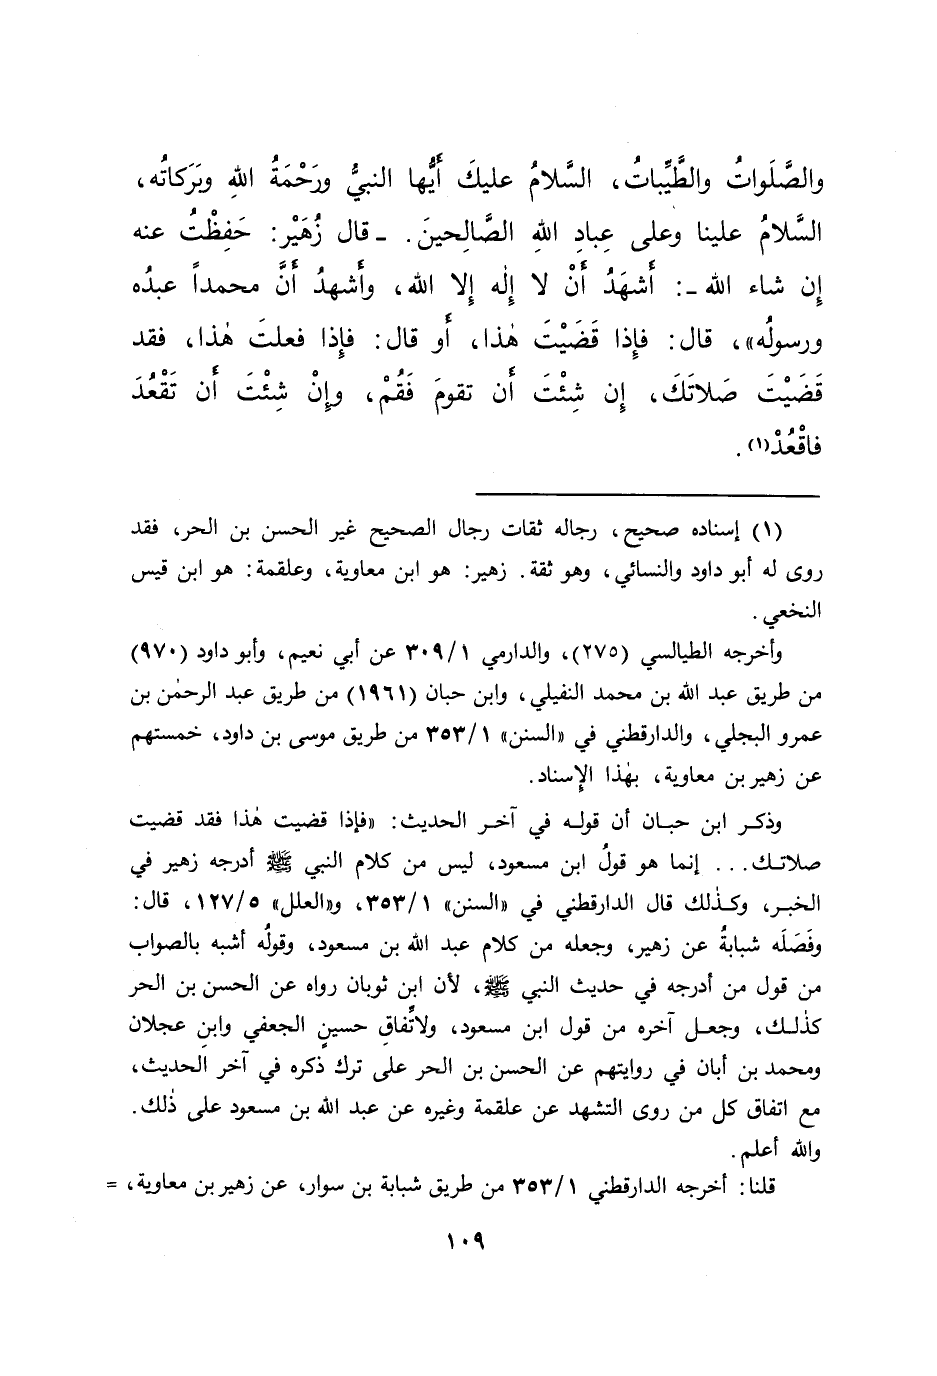 والصَّلَواتُ والطَّيِّباتُ، السَّلامُ عليكَ أَيُّها النبيُّ ورَحْمَةُ اللهِ وبَرَكاتُه،
السَّلامُ علينا وعلى عِبادِ اللهِ الصَّالِحينَ. ـ قال زُهَيْر: حَفِظْتُ عنه
إن شاء الله ـ: أَشهَدُ أَنْ لا إِلٰه إلا الله، وأَشهدُ أَنَّ محمداً عبدُه
ورسولُه»، قال: فإذا قَضَيْتَ هٰذا، أَو قال: فإذا فعلتَ هٰذا، فقد
قَضَيْتَ صَلاتَكَ، إن شِئْتَ أَن تقومَ فَقُمْ، وإنْ شِئْتَ أَن تَقْعُدَ
فاقْعُدْ(١).
(١) إسناده صحيح، رجاله ثقات رجال الصحيح غير الحسن بن الحر، فقد
روى له أبو داود والنسائي، وهو ثقة. زهير: هو ابن معاوية، وعلقمة: هو ابن قيس
النخعي.
وأخرجه الطيالسي (٢٧٥)، والدارمي ٣٠٩/١ عن أبي نعيم، وأبو داود (٩٧٠)
من طريق عبد الله بن محمد النفيلي، وابن حبان (١٩٦١) من طريق عبد الرحمٰن بن
عمرو البجلي، والدارقطني في «السنن» ٣٥٣/١ من طريق موسى بن داود، خمستهم
عن زهير بن معاوية، بهٰذا الإسناد.
وذكر ابن حبان أن قوله في آخر الحديث: «فإذا قضيت هٰذا فقد قضيت
صلاتك... إنما هو قولُ ابن مسعود، ليس من كلام النبي ﷺ أدرجه زهير في
الخبر، وكذٰلك قال الدارقطني في «السنن» ٣٥٣/١، و«العلل» ١٢٧/٥، قال:
وفَصَلَه شبابةُ عن زهير، وجعله من كلام عبد الله بن مسعود، وقولُه أشبه بالصواب
من قول من أدرجه في حديث النبي ﷺ، لأن ابن ثوبان رواه عن الحسن بن الحر
كذٰلك، وجعل آخره من قول ابن مسعود، ولاتِّفاقِ حسينٍ الجعفي وابنِ عجلان
ومحمد بن أبان في روايتهم عن الحسن بن الحر على ترك ذكره في آخر الحديث،
مع اتفاق كل من روى التشهد عن علقمة وغيره عن عبد الله بن مسعود على ذٰلك.
والله أعلم.
قلنا: أخرجه الدارقطني ٣٥٣/١ من طريق شبابة بن سوار، عن زهير بن معاوية، =
١٠٩